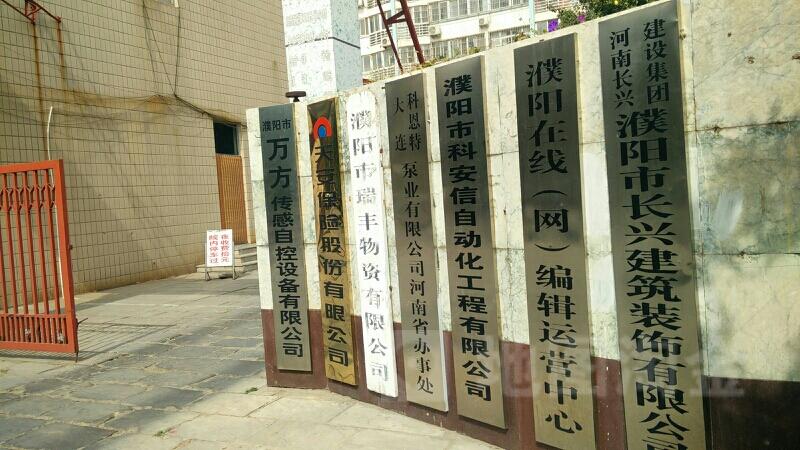 濮阳市
万方传感自控设备有限公司
天安保险股份有限公司
濮阳市瑞丰物资有限公司
大连
科恩特
泵业有限公司河南省办事处
濮阳市科安信自动化工程有限公司
濮阳在线（网）编辑运营中心
河南长兴
建设集团
濮阳市长兴建筑装饰有限公司
院内停车过
夜收费拾元